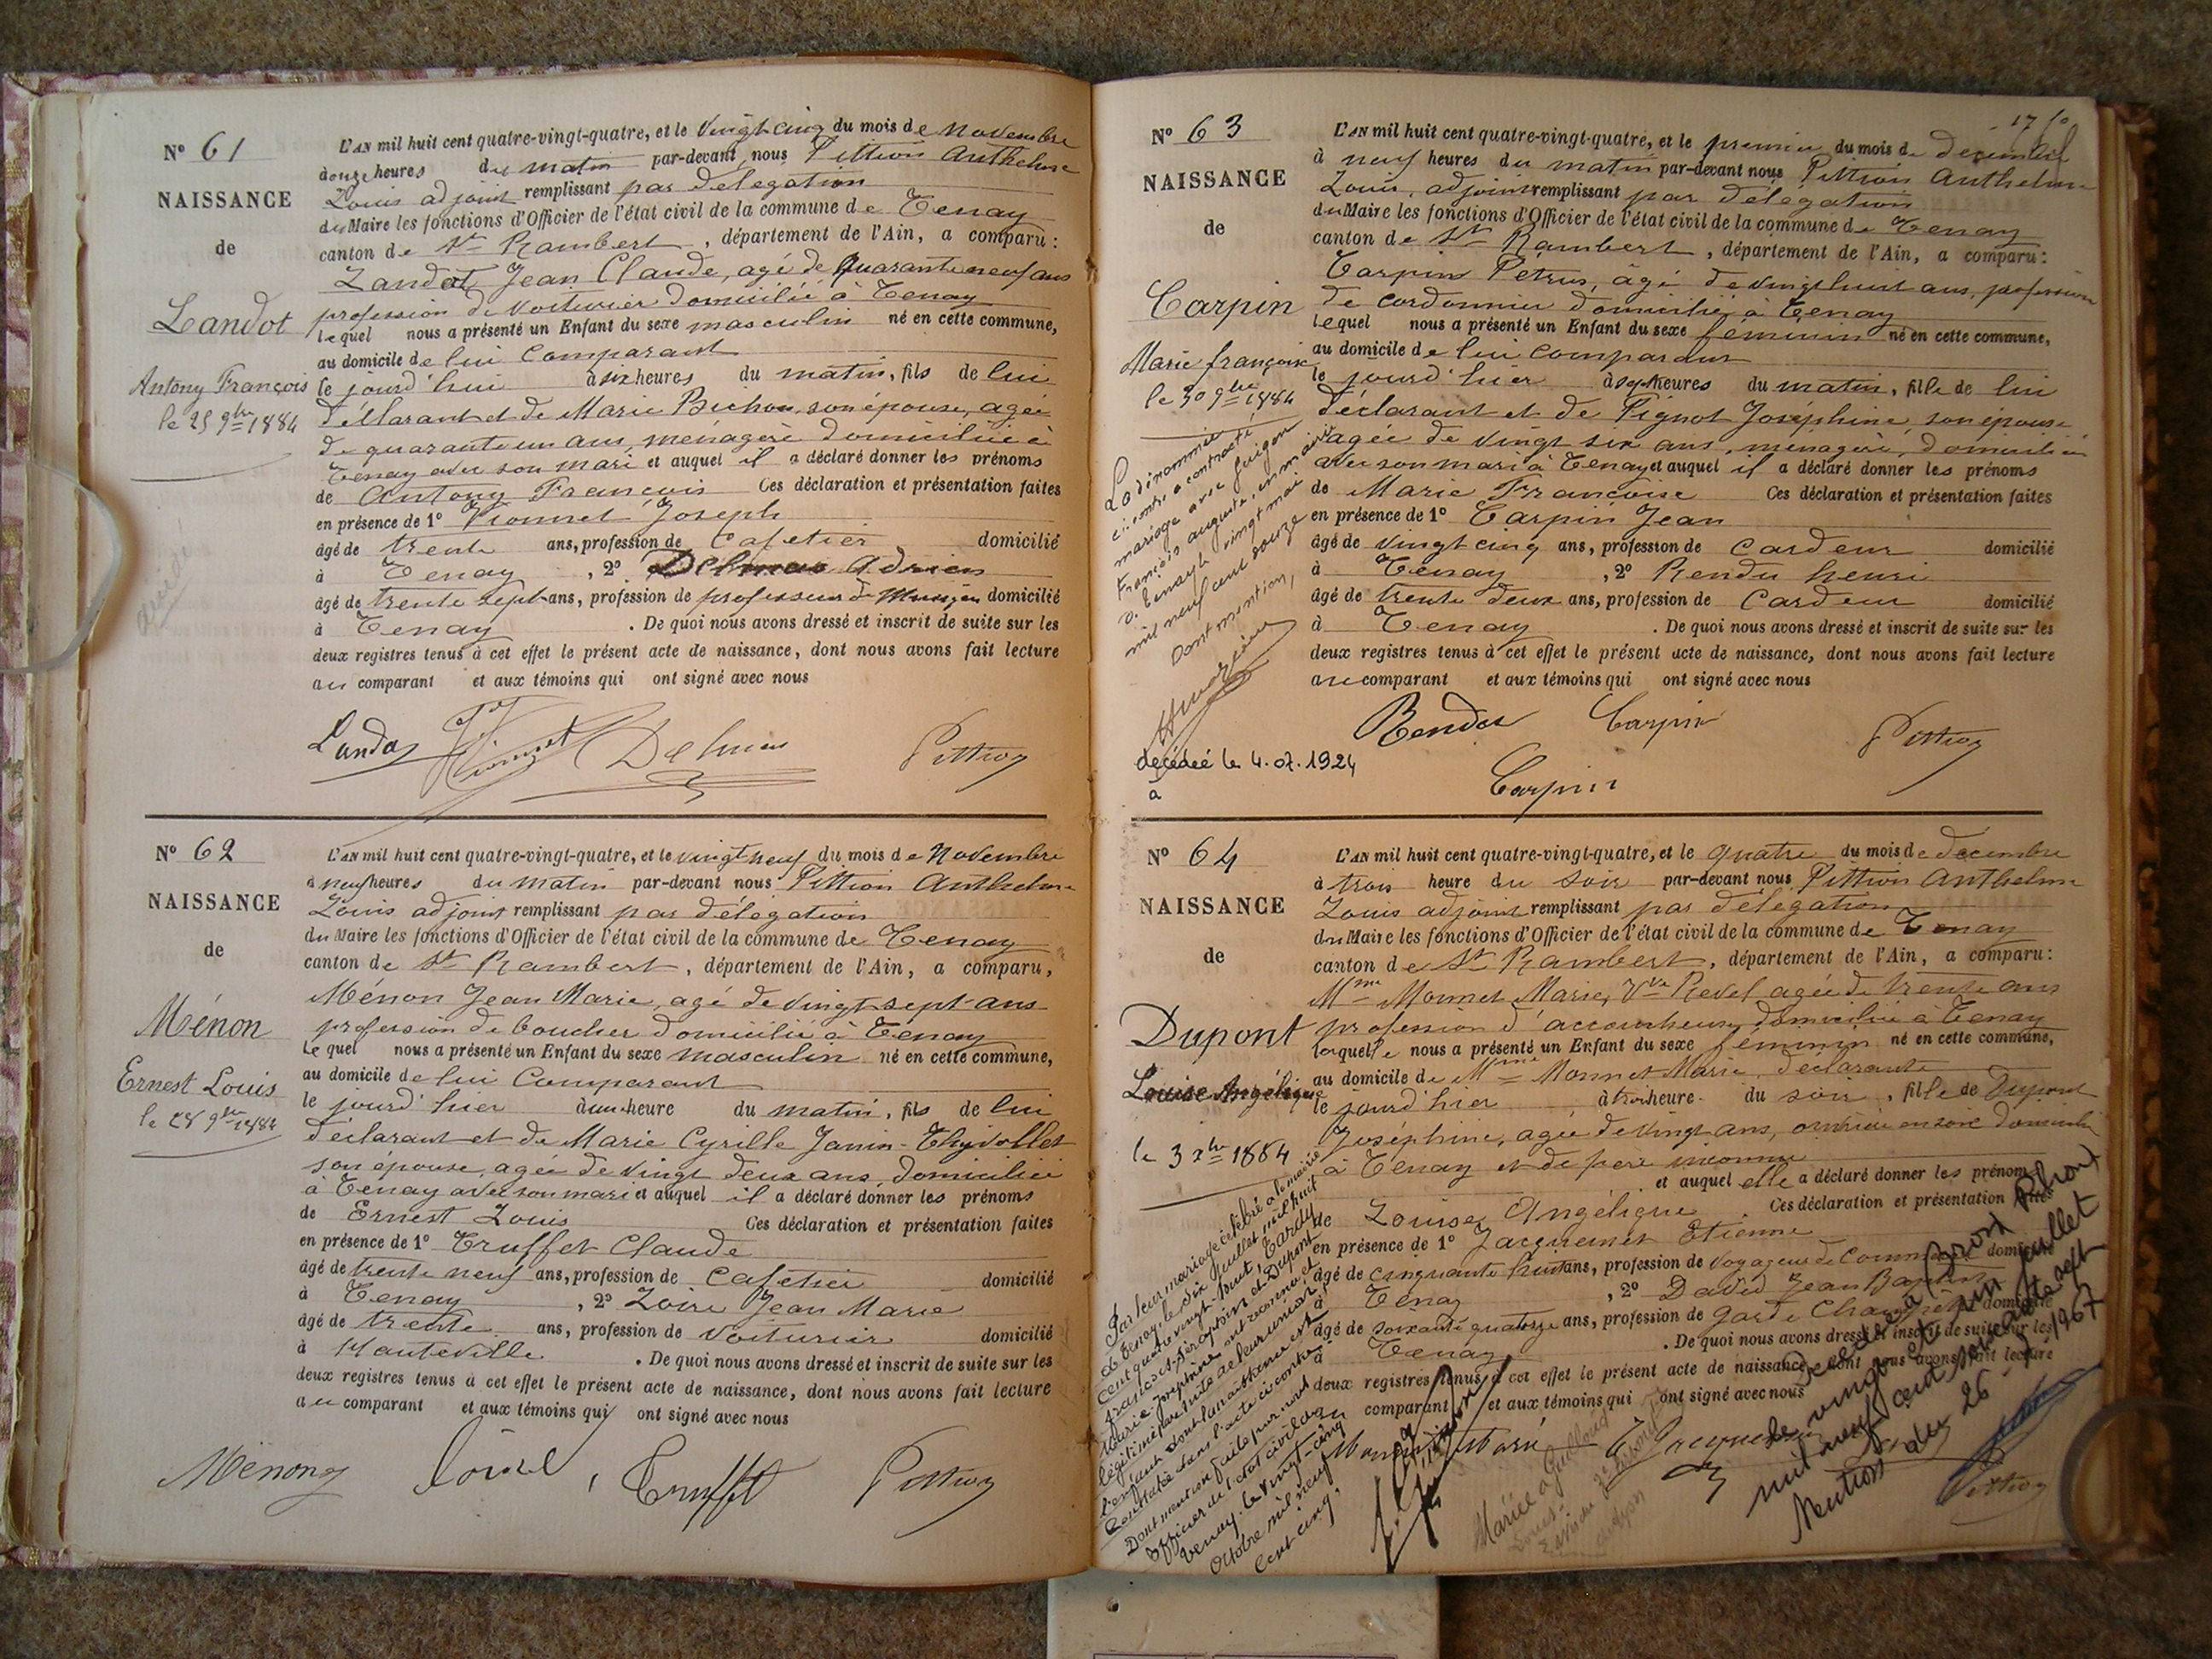 N° 61
NAISSANCE
de
Landot
Antony François
le 25 9bre 1884
L'AN mil huit cent quatre-vingt-quatre, et le vingt cinq du mois de novembre
à onze heures du matin par-devant nous Pittion Anthelme
Louis adjoint remplissant par délégation
du Maire les fonctions d'Officier de l'état civil de la commune de Tenay
canton de St Rambert, département de l'Ain, a comparu :
Landot Jean Claude, agé de quarante neuf ans
profession de voiturier domicilié à Tenay
lequel nous a présenté un Enfant du sexe masculin né en cette commune,
au domicile de lui Comparant
le jourd'hui à six heures du matin, fils de lui
déclarant et de Marie Bichon son épouse, agée
de quarante un ans, ménagère domiciliée à
Tenay avec son mari et auquel il a déclaré donner les prénoms
de Antony François Ces déclaration et présentation faites
en présence de 1° Joseph
âgé de trente ans, profession de Cafetier domicilié
à Tenay, 2° Delmas Adrien
âgé de trente sept ans, profession de professeur de domicilié
à Tenay. De quoi nous avons dressé et inscrit de suite sur les
deux registres tenus à cet effet le présent acte de naissance, dont nous avons fait lecture
au comparant et aux témoins qui ont signé avec nous
Delmas Pittion
N° 62
NAISSANCE
de
Ménon
Ernest Louis
le 28 9bre 1884
L'AN mil huit cent quatre-vingt-quatre, et le vingt neuf du mois de Novembre
à neuf heures du matin par-devant nous Pittion Anthelme
Louis adjoint remplissant par délégation
du Maire les fonctions d'Officier de l'état civil de la commune de Tenay
canton de St Rambert, département de l'Ain, a comparu,
Ménon Jean Marie, agé de vingt sept ans
profession de boucher domicilié à Tenay
Lequel nous a présenté un Enfant du sexe masculin né en cette commune,
au domicile de lui Comparant
le jourd'hier à une heure du matin, fils de lui
déclarant et de Marie Cyrille Janin-Thivollet
son épouse, agée de vingt deux ans, domiciliée
à Tenay avec son mari et auquel il a déclaré donner les prénoms
de Ernest Louis Ces déclaration et présentation faites
en présence de 1° Truffet Claude
âgé de trente neuf ans, profession de Cafetier domicilié
à Tenay, 2° Loire Jean Marie
âgé de trente ans, profession de voiturier domicilié
à Hauteville. De quoi nous avons dressé et inscrit de suite sur les
deux registres tenus à cet effet le présent acte de naissance, dont nous avons fait lecture
au comparant et aux témoins qui ont signé avec nous
Ménon Truffet Pittion
17
N° 63
NAISSANCE
de
Carpin
Marie françoise
le 30 9bre 1884
La dénommée
ci-contre a contracté
mariage avec Guigon
François Auguste, en mairie
vingt mai
mil neuf cent douze
Dont mention,
décédée le 4.07.1924
à
L'AN mil huit cent quatre-vingt-quatre, et le premier du mois de décembre
à neuf heures du matin par-devant nous Pittion Anthelme
Louis, adjoint remplissant par délégation
du Maire les fonctions d'Officier de l'état civil de la commune de Tenay
canton de St Rambert, département de l'Ain, a comparu :
Carpin Pétrus, âgé de vingt huit ans, profession
de cordonnier domicilié à Tenay
lequel nous a présenté un Enfant du sexe féminin né en cette commune,
au domicile de lui comparant
le jourd'hier à sept heures du matin, fille de lui
déclarant et de Pignot Joséphine son épouse
agée de vingt six ans, ménagère, domiciliée
avec son mari à Tenay et auquel il a déclaré donner les prénoms
de Marie Françoise Ces déclaration et présentation faites
en présence de 1° Carpin Jean
âgé de vingt cinq ans, profession de Cardeur domicilié
à Tenay, 2° Rendu henri
âgé de trente deux ans, profession de Cardeur domicilié
à Tenay. De quoi nous avons dressé et inscrit de suite sur les
deux registres tenus à cet effet le présent acte de naissance, dont nous avons fait lecture
au comparant et aux témoins qui ont signé avec nous
Rendu Carpin Pittion
Carpin
N° 64
NAISSANCE
de
Dupont
Louise Angélique
le 3 xbre 1884
Par leur mariage célébré à la mairie
de Tenay, le dix juillet mil huit
cent quatre vingt-huit, Tardy
François et Dupont
Marie Joséphine ont reconnu et
légitimé par suite de leur union
l'enfant dont la naissance est
constatée dans l'acte ci-contre
Dont mention faite par nous
officier de l'état civil de
Tenay, le vingt-cinq
Octobre mil neuf
cent cinq.
L'AN mil huit cent quatre-vingt-quatre, et le quatre du mois de decembre
à trois heure du soir par-devant nous Pittion Anthelme
Louis adjoint remplissant par délégation
du Maire les fonctions d'Officier de l'état civil de la commune de Tenay
canton de St Rambert, département de l'Ain, a comparu :
Mme Monnet Marie, Vve Revel agée de trente ans
profession d'accoucheuse domiciliée à Tenay
laquelle nous a présenté un Enfant du sexe féminin né en cette commune,
au domicile de Mme Monnet Marie, déclarante
le jourd'hier à trois heure du soir, fille de Dupont
Joséphine, agée de vingt ans, ouvrière en soie domiciliée
à Tenay et de père inconnu
et auquel elle a déclaré donner les prénoms
de Louise Angélique Ces déclaration et présentation faites
en présence de 1° Jacquemet Etienne
âgé de cinquante huit ans, profession de voyageur de Commerce domicilié
à Tenay, 2° David Jean Baptiste
âgé de soixante quatorze ans, profession de garde Champêtre domicilié
à Tenay. De quoi nous avons dressé et inscrit de suite sur les
deux registres tenus à cet effet le présent acte de naissance, dont nous avons fait lecture
comparant et aux témoins qui ont signé avec nous
Monnet Marie Jacquemet
Pittion
Mariée à
Décédée à Bron Rhône
le vingt et un juillet
mil neuf cent soixante sept
Mention du 26 1967